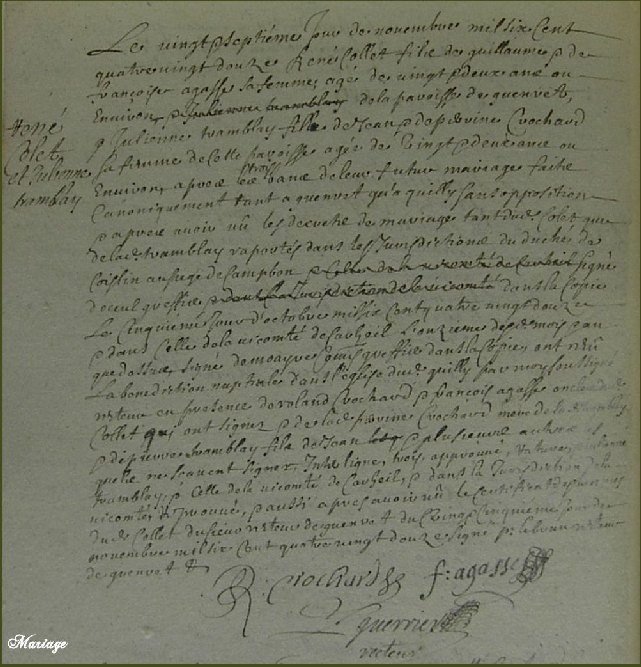 Le vingt septiéme jour de novembre mil six cent
quatre vingt douze René Collet fils de guillaume & de
françoise agasse sa femme, agé de vingt & deux ans ou
Environ, de la paroisse de guenvet,
& Julienne tramblay fille de Jean, & de perrine Crochard
sa femme de Cette paroisse agée de vingt & deux ans ou
Environ, apres les trois bans de leur futur mariage faits
Canoniquement tant a guenvet qu'a quilly sans opposition
& apres avoir vû les decrets de mariage tant dud. Colet que
de lad. tramblay raportés dans les Jurisdictions du duché de
Coislin au siege de Campbon signé
greffier dans la Copie
Le Cinquiéme jour d'octobre mil six cent quatre vingt douze
& dans Celle de la vicomté de Carheil L'onziéme des mois & an
que dessus, signé greffier dans la Copie, ont reçu
La benediction nuptiale dans l'Eglise de quilly par moy soussigné
recteur en presence de roland Crochard & françois agasse oncle dud.
Collet qui ont signez & de lad. perrine Crochard mere de la tramblay
& de pierre tramblay fils de Jean & plusieurs autres
ne scavent signer, Interligne, trois, approuvé,
tramblay, & Celle de la vicomté de Carheil, & dans la Jurisdiction de la
vicomté, & aussi apres avoir vû le certificat des bannies
dud. Collet du sieur recteur de guenvet du vingt Cinquiéme jour de
novembre mil six cent quatre vingt douze signé recteur
de guenvet
René
Colet
et Julienne
tramblay
R: Crochard
f: agasse
Guerrier
recteur
Mariage